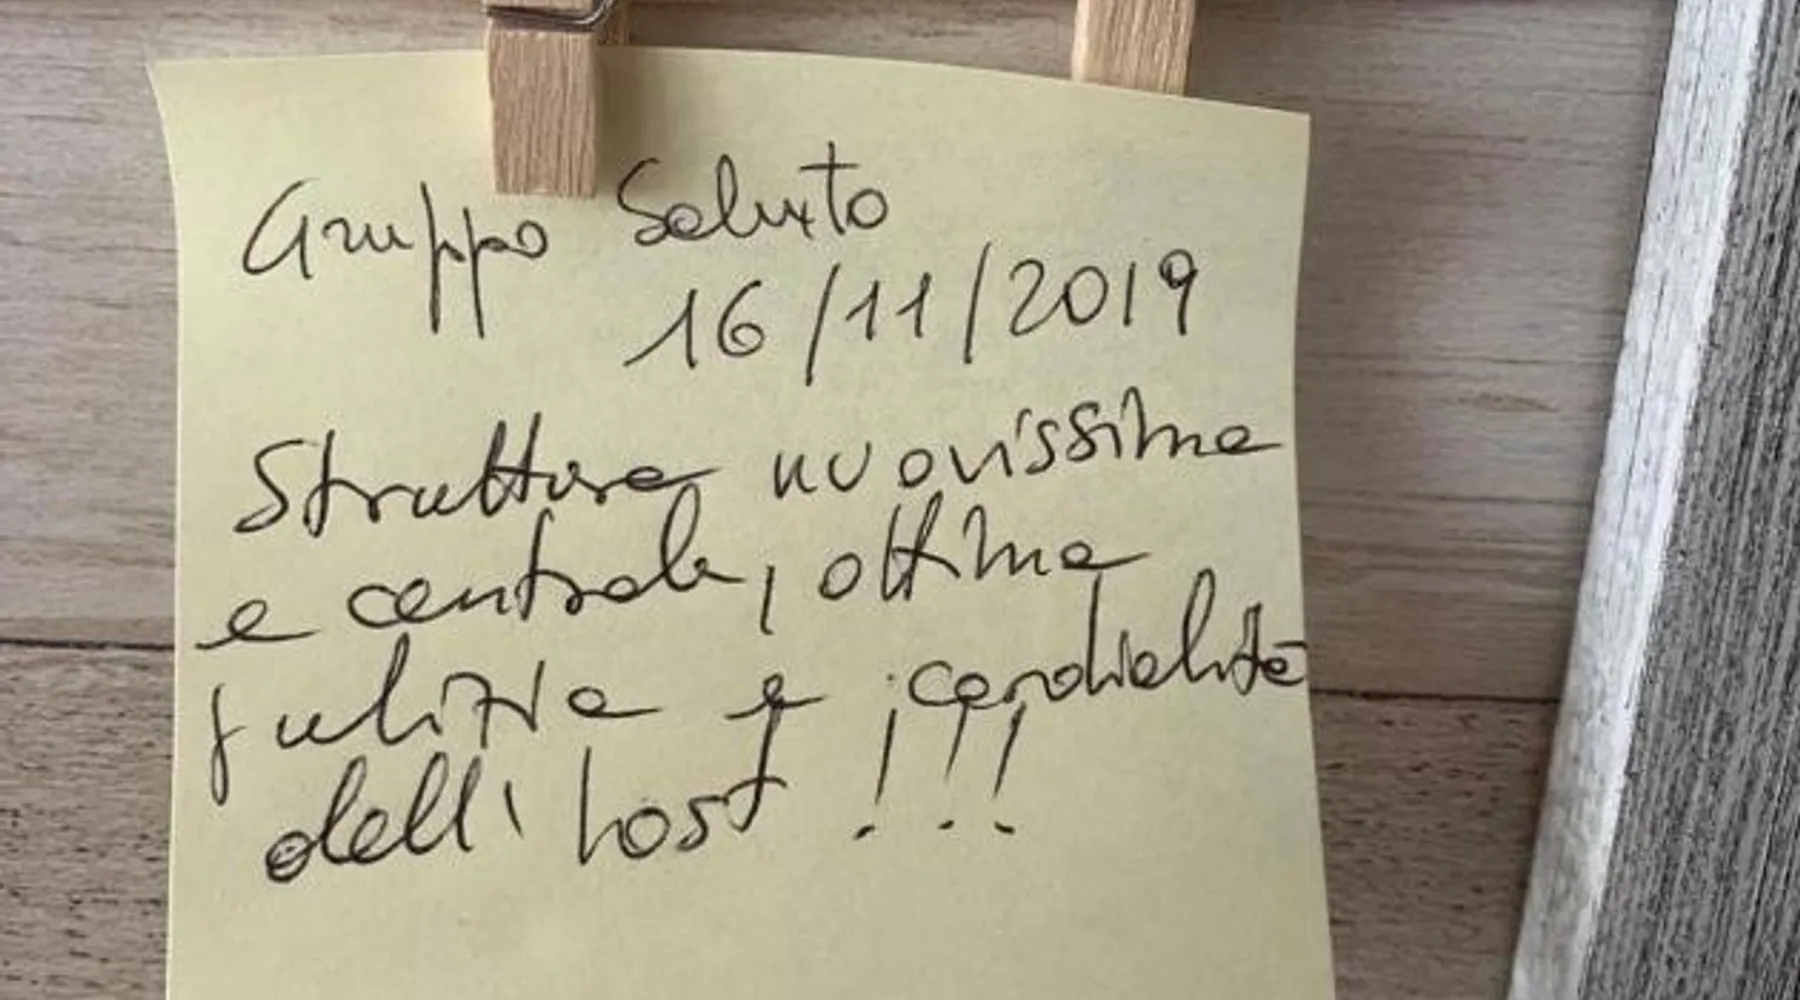 Gruppo Saluto
16/11/2019
Struttura nuovissima
e centrale, ottima
pulizia e cordialità
dell'host !!!